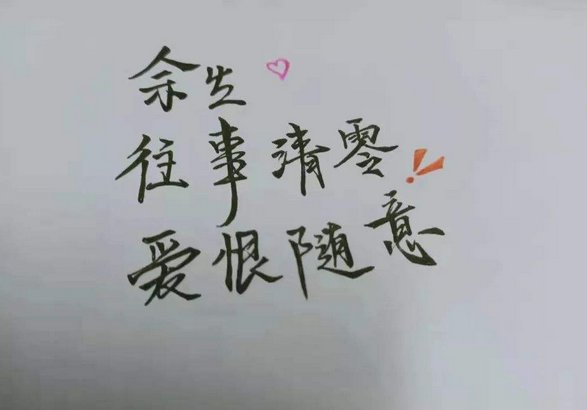 余生
往事清零
爱恨随意